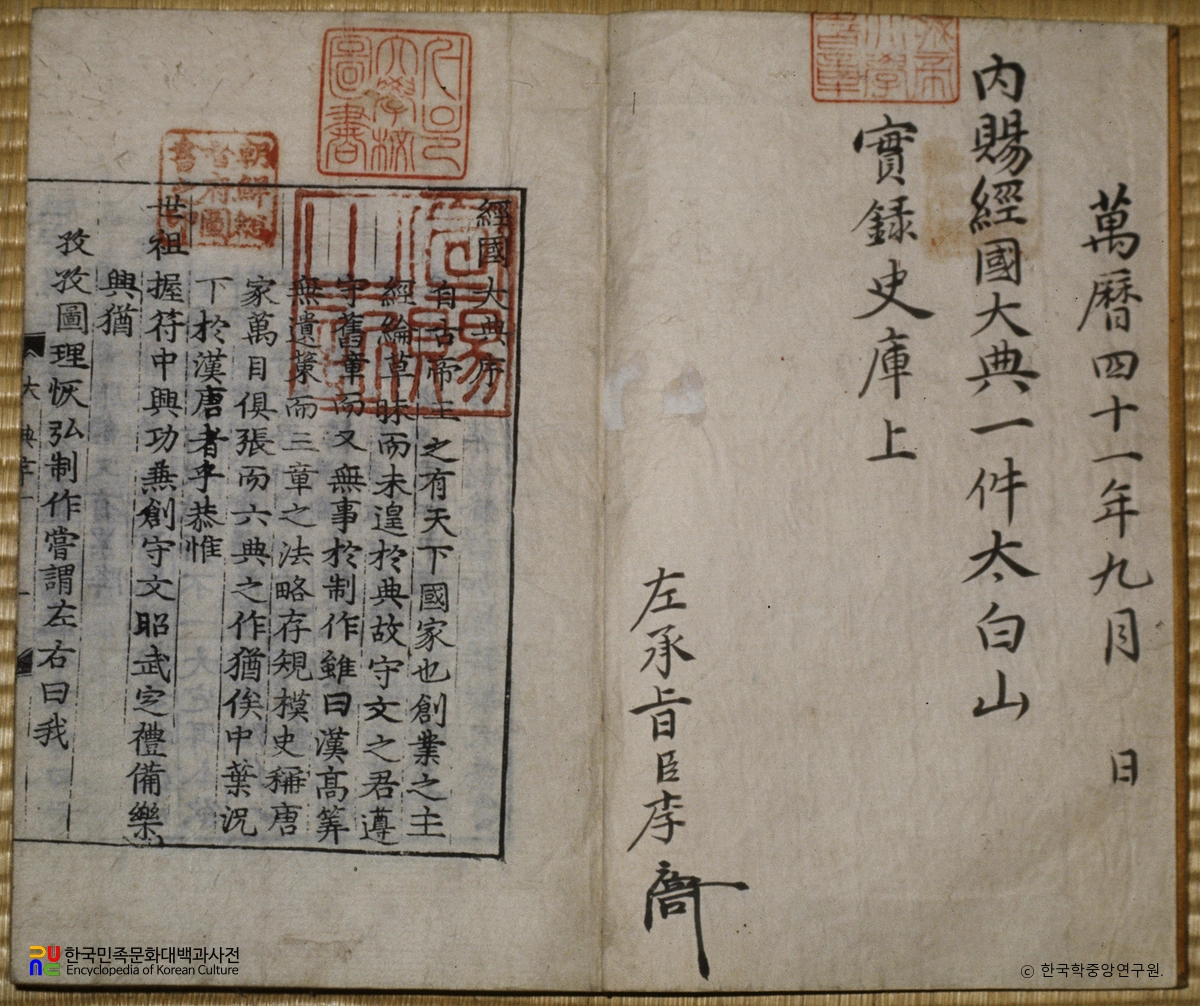 萬曆四十一年九月 日
內賜經國大典一件太白山
實錄史庫上
左承旨臣李
大學校圖書
朝鮮總督府圖書之印
經國大典序
自古帝王之有天下國家也創業之主
經綸草昧而未遑於典故守文之君遵
守舊章而又無事於制作雖曰漢高筭
無遺策而三章之法略存規模史稱唐
家萬目俱張而六典之作猶俟中葉況
下於漢唐者乎恭惟
世祖握符中興功兼創守文昭武定禮備樂
興猶
孜孜圖理恢弘制作嘗謂左右曰我
大典序 一
한국민족문화대백과사전
Encyclopedia of Korean Culture
ⓒ 한국학중앙연구원.